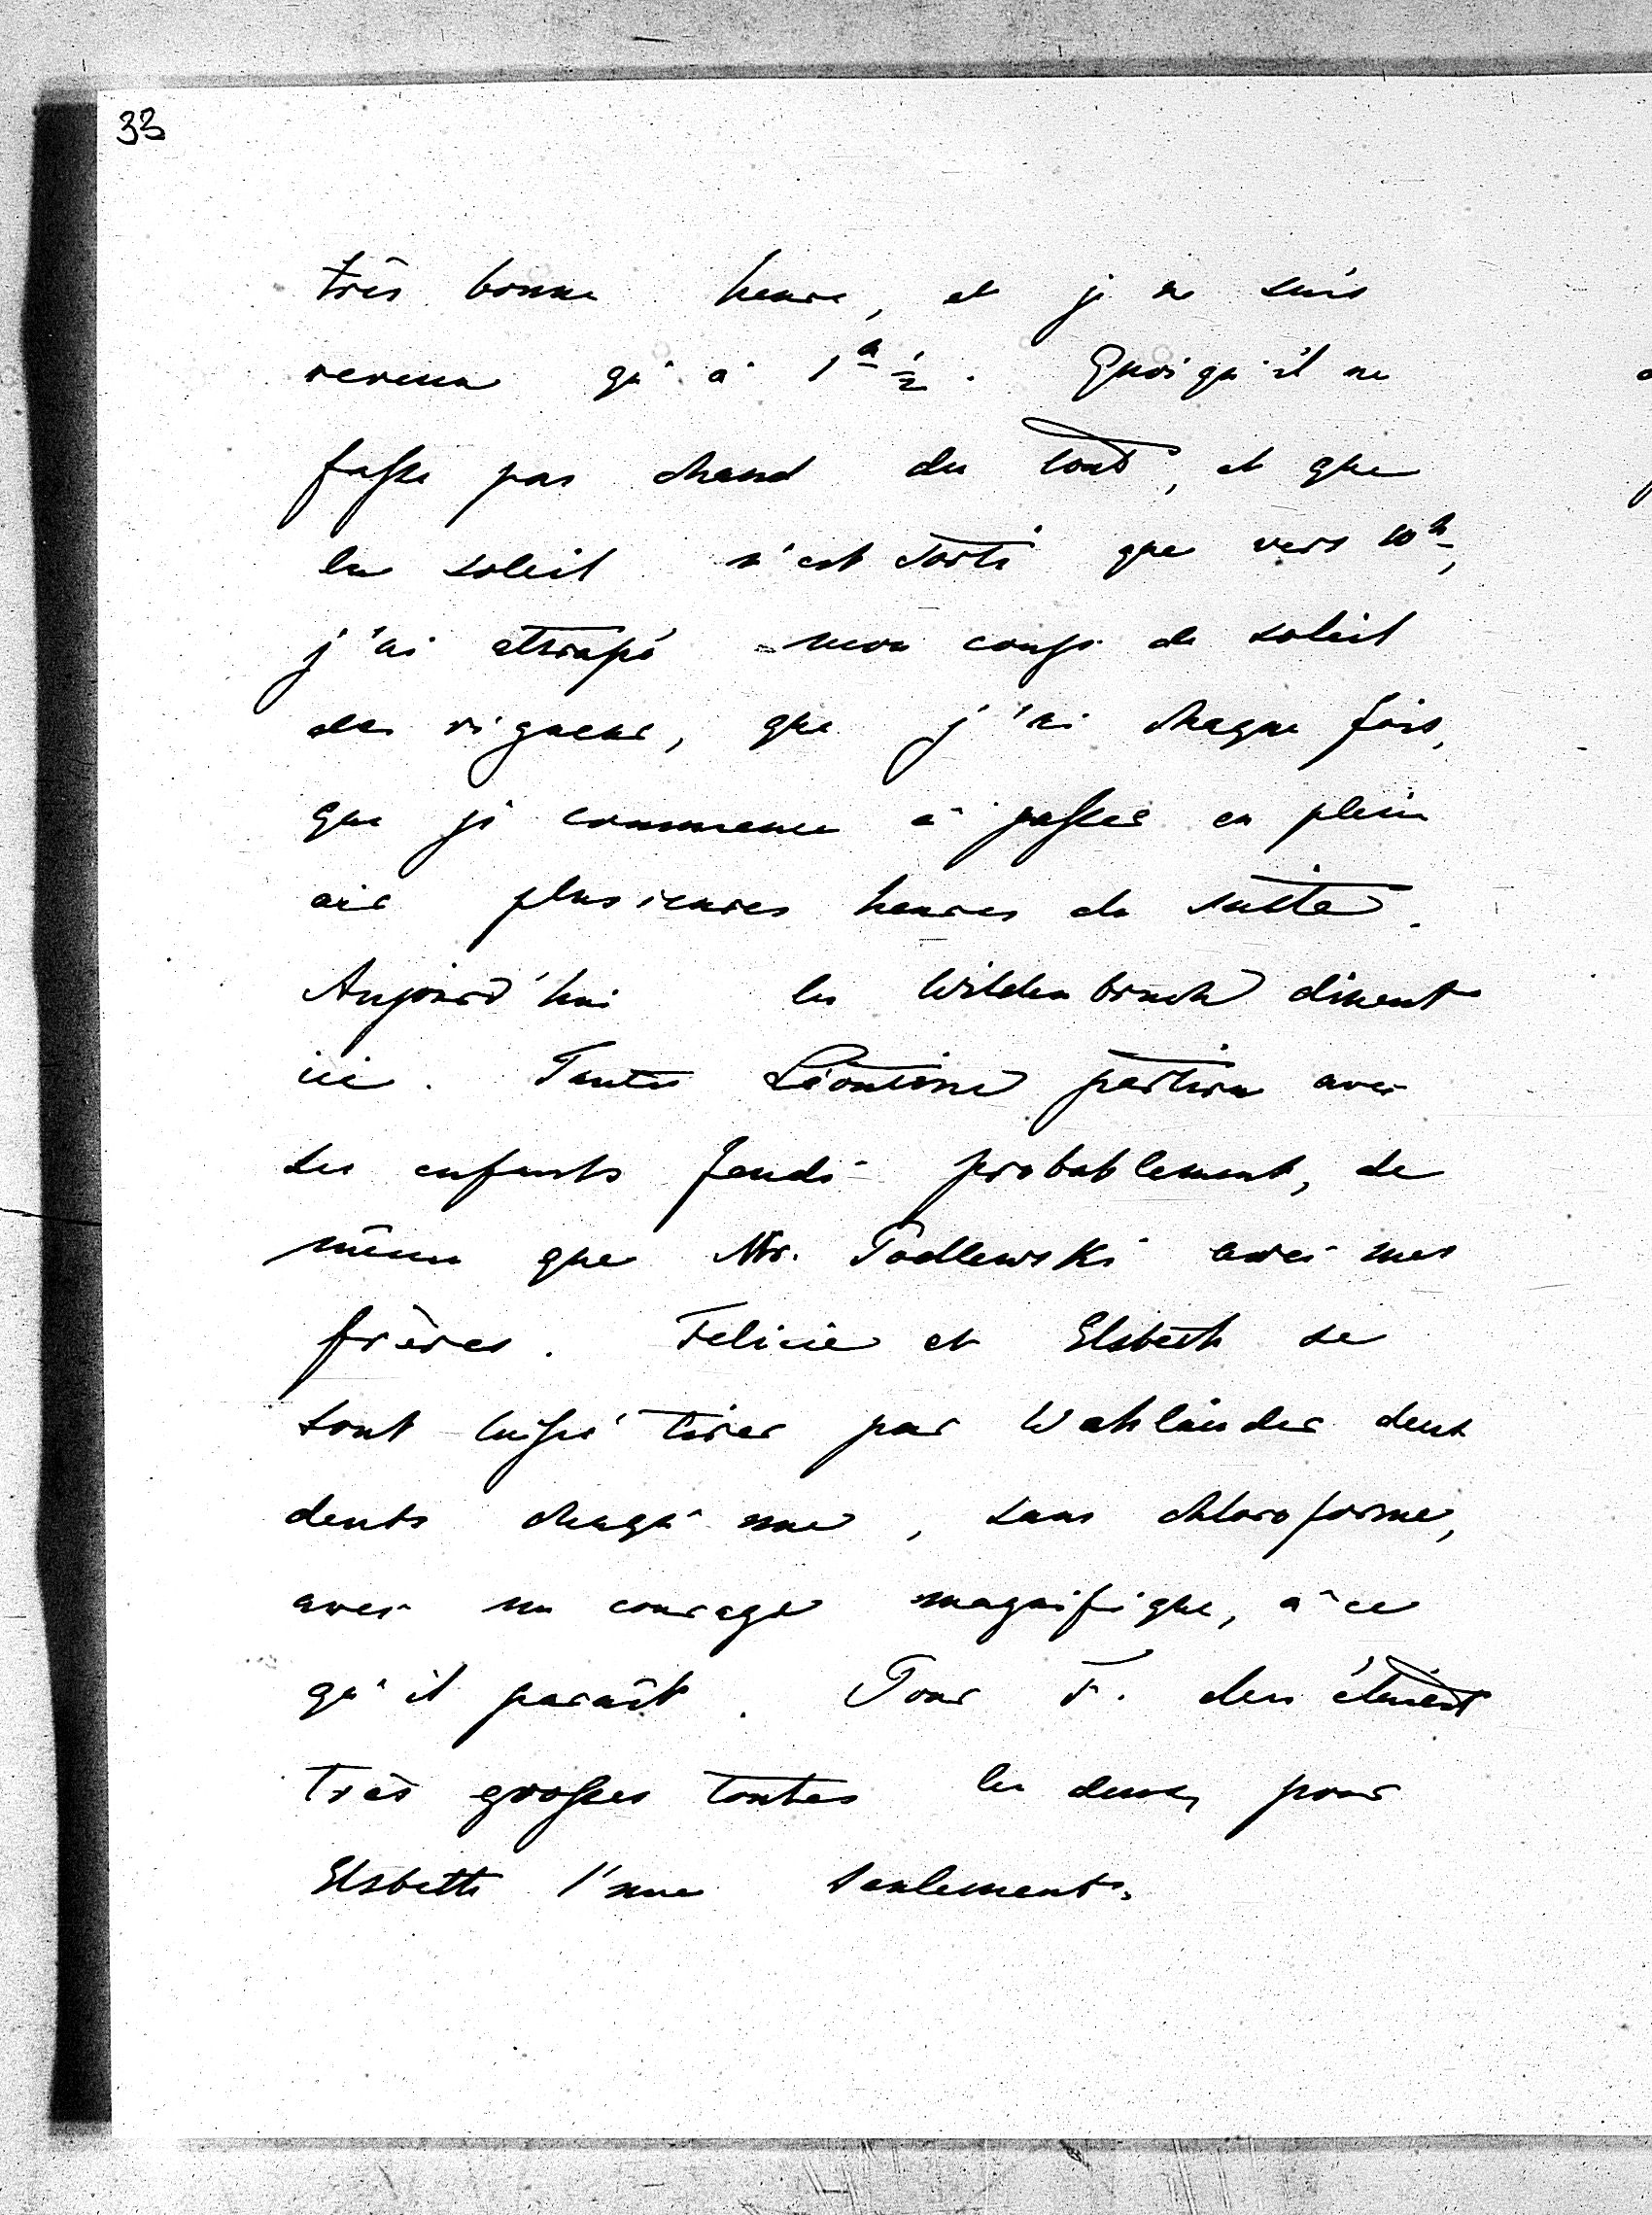 33
très bonne heure, et je ne suis
revenu qu'à 1h ½. Quoiqu'il ne
fasse pas chaud du tout, et que
le soleil n'est sorti que vers 10h,
j'ai attrapé mon coup de soleil
de rigueur, que j'ai chaque fois,
que je commence à passer en plein
air plusieures heures de suite.
Aujourd'hui les Wildenbruch dinent
ici. Tante Léontine partira avec
ses enfants Jeudi probablement, de
même que Mr. Podlewski avec mes
frères. Felicie et Elsbeth se
sont laissé tirer par Wahländer deux
dents chaqu'une, sans chloroforme,
avec un courage magnifique, à ce
qu'il paraît. Pour F. elles étaient
très grosses toutes les deux, pour
Elsbeth l'une seulement.